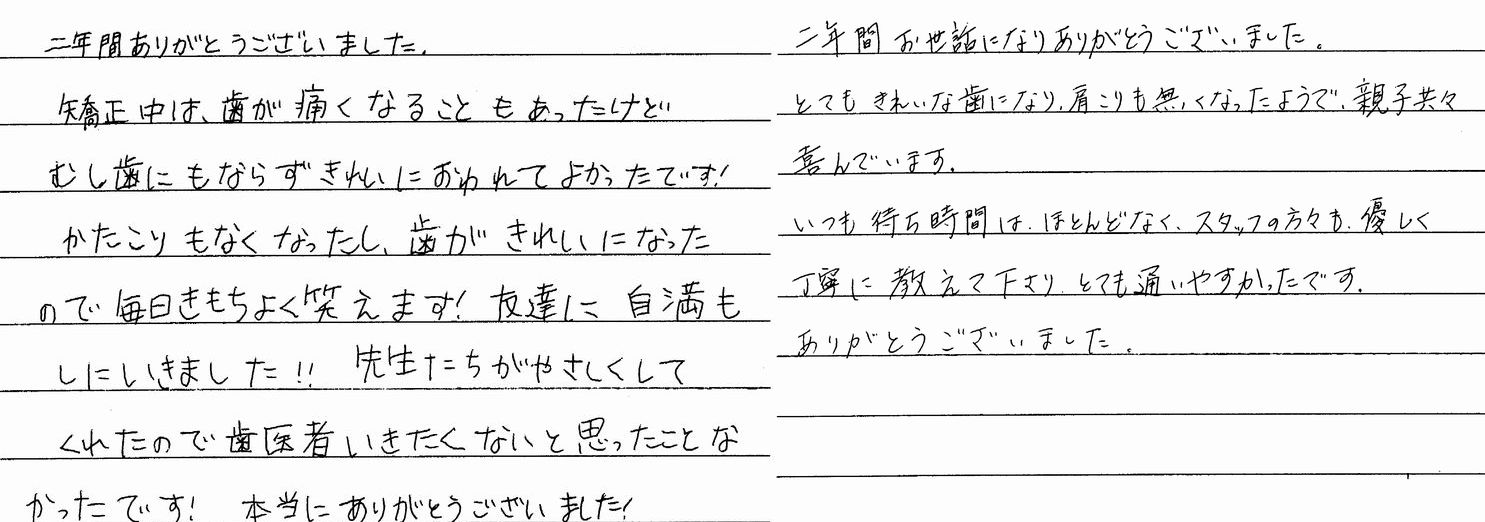 二年間ありがとうございました.
矯正中は、歯が痛くなることもあったけど
むし歯にもならずきれいにおわれてよかったです!
かたこりもなくなったし、歯がきれいになった
ので毎日きもちよく笑えます! 友達に自満も
しにいきました!! 先生たちがやさしくして
くれたので歯医者いきたくないと思ったことな
かったです! 本当にありがとうございました!
二年間お世話になりありがとうございました。
とてもきれいな歯になり、肩こりも無くなったようで、親子共々
喜んでいます.
いつも待ち時間は、ほとんどなく、スタッフの方々も、優しく
丁寧に教えて下さり、とても通いやすかったです.
ありがとうございました.